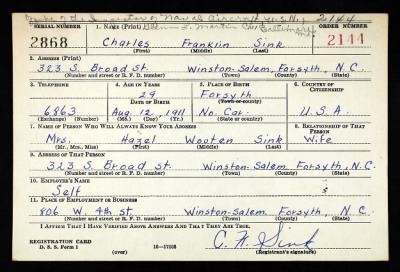 Inspector of Naval Aircraft, U.S.N., 2144
Glenn L. Martin Co. Baltimore
SERIAL NUMBER 1. NAME (Print) ORDER NUMBER
2868 Charles Franklin Sink 2144
(First) (Middle) (Last)
2. ADDRESS (Print)
323 S. Broad St. Winston-Salem, Forsyth, N.C.
(Number and street or R. F. D. number) (Town) (County) (State)
3. TELEPHONE 4. AGE IN YEARS 5. PLACE OF BIRTH 6. COUNTRY OF CITIZENSHIP
29 Forsyth
DATE OF BIRTH (Town or county)
6863 Aug. 12, 1911 No. Car. U.S.A.
(Exchange) (Number) (Mo.) (Day) (Yr.) (State or country)
7. NAME OF PERSON WHO WILL ALWAYS KNOW YOUR ADDRESS 8. RELATIONSHIP OF THAT PERSON
Mrs. Hazel Wooten Sink Wife
(Mr., Mrs., Miss) (First) (Middle) (Last)
9. ADDRESS OF THAT PERSON
323 S. Broad St. Winston-Salem Forsyth, N.C.
(Number and street or R. F. D. number) (Town) (County) (State)
10. EMPLOYER'S NAME
Self
11. PLACE OF EMPLOYMENT OR BUSINESS
806 W. 4th St. Winston-Salem Forsyth, N.C.
(Number and street or R. F. D. number) (Town) (County) (State)
I AFFIRM THAT I HAVE VERIFIED ABOVE ANSWERS AND THAT THEY ARE TRUE.
REGISTRATION CARD
D. S. S. Form 1 (over) 16—17105 C. F. Sink
(Registrant's signature)